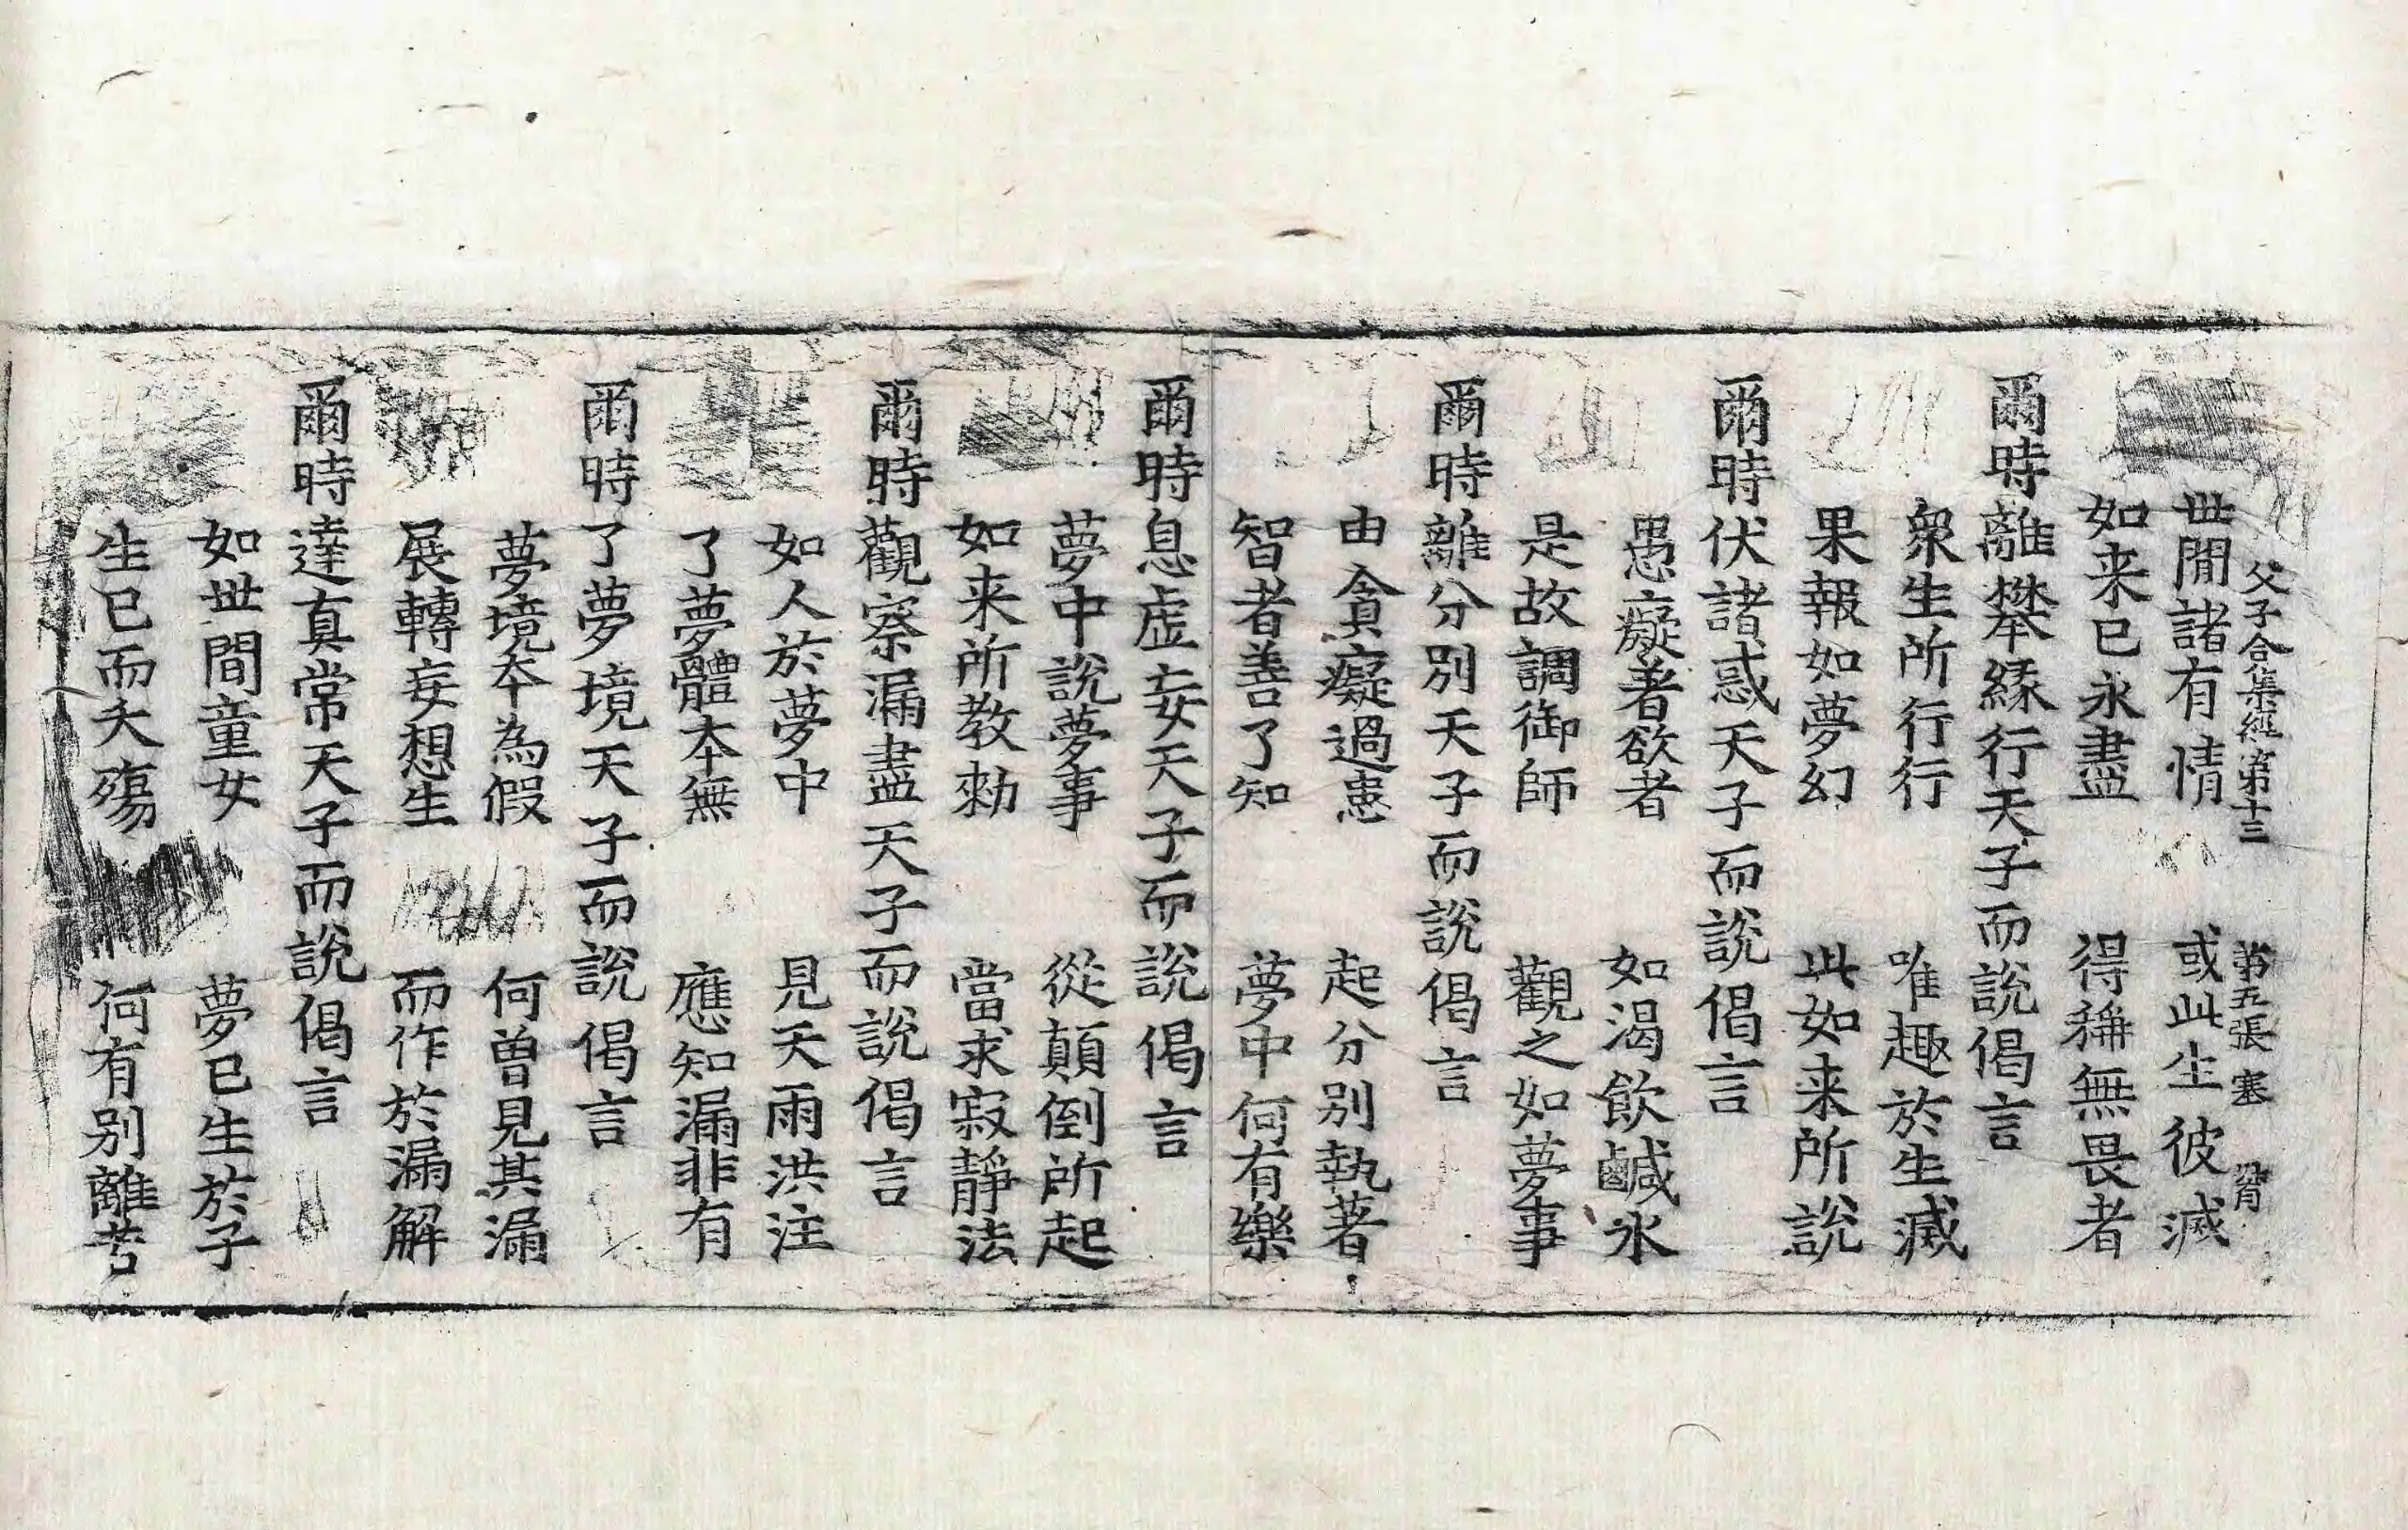 父子合集經第十三 第五張 塞
世閒諸有情 或此生彼滅
如来已永盡 得稱無畏者
爾時離攀縁行天子而說偈言
衆生所行行 唯趣於生滅
果報如夢幻 此如来所說
爾時伏諸惑天子而說偈言
愚癡著欲者 如渴飲鹹水
是故調御師 觀之如夢事
爾時離分別天子而說偈言
由貪癡過患 起分別執著
智者善了知 夢中何有樂
爾時息虛妄天子而說偈言
夢中說夢事 從顛倒所起
如来所教勑 當求寂靜法
爾時觀察漏盡天子而說偈言
如人於夢中 見天雨洪注
了夢體本無 應知漏非有
爾時了夢境天子而說偈言
夢境本為假 何曾見其漏
展轉妄想生 而作於漏解
爾時達真常天子而說偈言
如世間童女 夢已生於子
生已而夭殤 何有別離苦